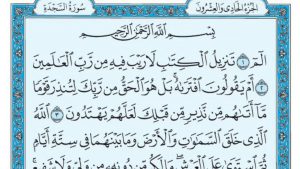 الجزء الحادي والعشرون
سورة السجدة
بِسْمِ اللَّهِ الرَّحْمَٰنِ الرَّحِيمِ
الٓمٓ ١ تَنزِيلُ الْكِتَٰبِ لَا رَيْبَ فِيهِ مِن رَّبِّ الْعَٰلَمِينَ
٢ أَمْ يَقُولُونَ افْتَرَىٰهُ بَلْ هُوَ الْحَقُّ مِن رَّبِّكَ لِتُنذِرَ قَوْمًا
مَّا أَتَىٰهُم مِّن نَّذِيرٍ مِّن قَبْلِكَ لَعَلَّهُمْ يَهْتَدُونَ ٣ اللَّهُ
الَّذِي خَلَقَ السَّمَٰوَٰتِ وَالْأَرْضَ وَمَا بَيْنَهُمَا فِي سِتَّةِ أَيَّامٍ
ثُمَّ اسْتَوَىٰ عَلَى الْعَرْشِ مَا لَكُم مِّن دُونِهِ مِن وَلِيٍّ وَلَا شَفِيعٍ